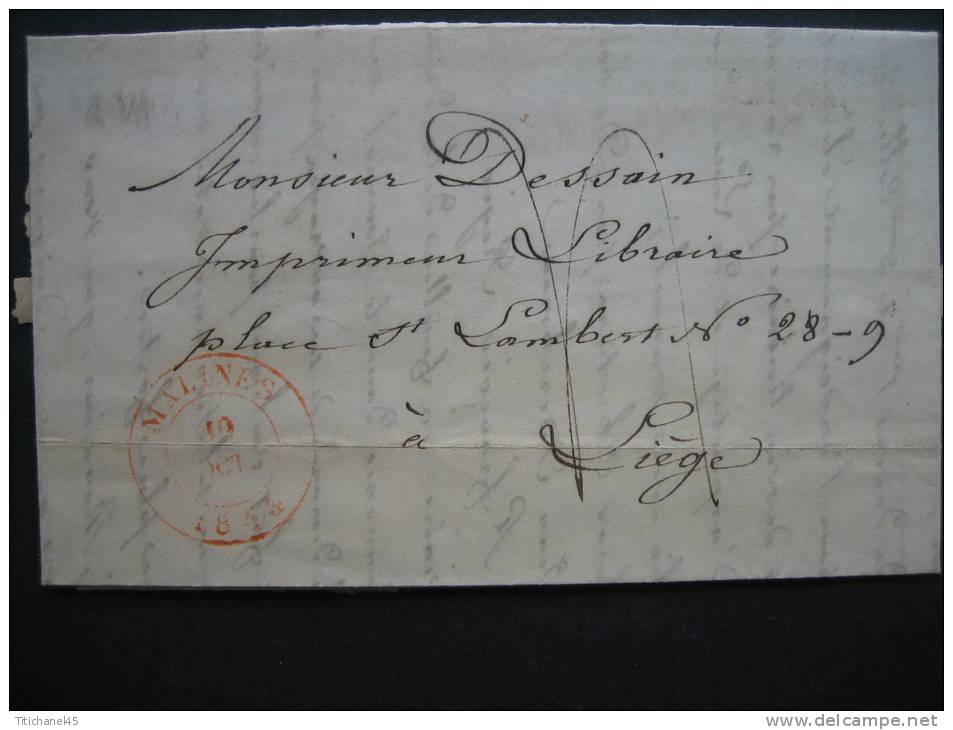 Monsieur Dessain
Imprimeur Libraire
place St Lambert No 28-9
à Liège
MALINES
10
OCT
1844
Ttichane45
www.delcampe.net